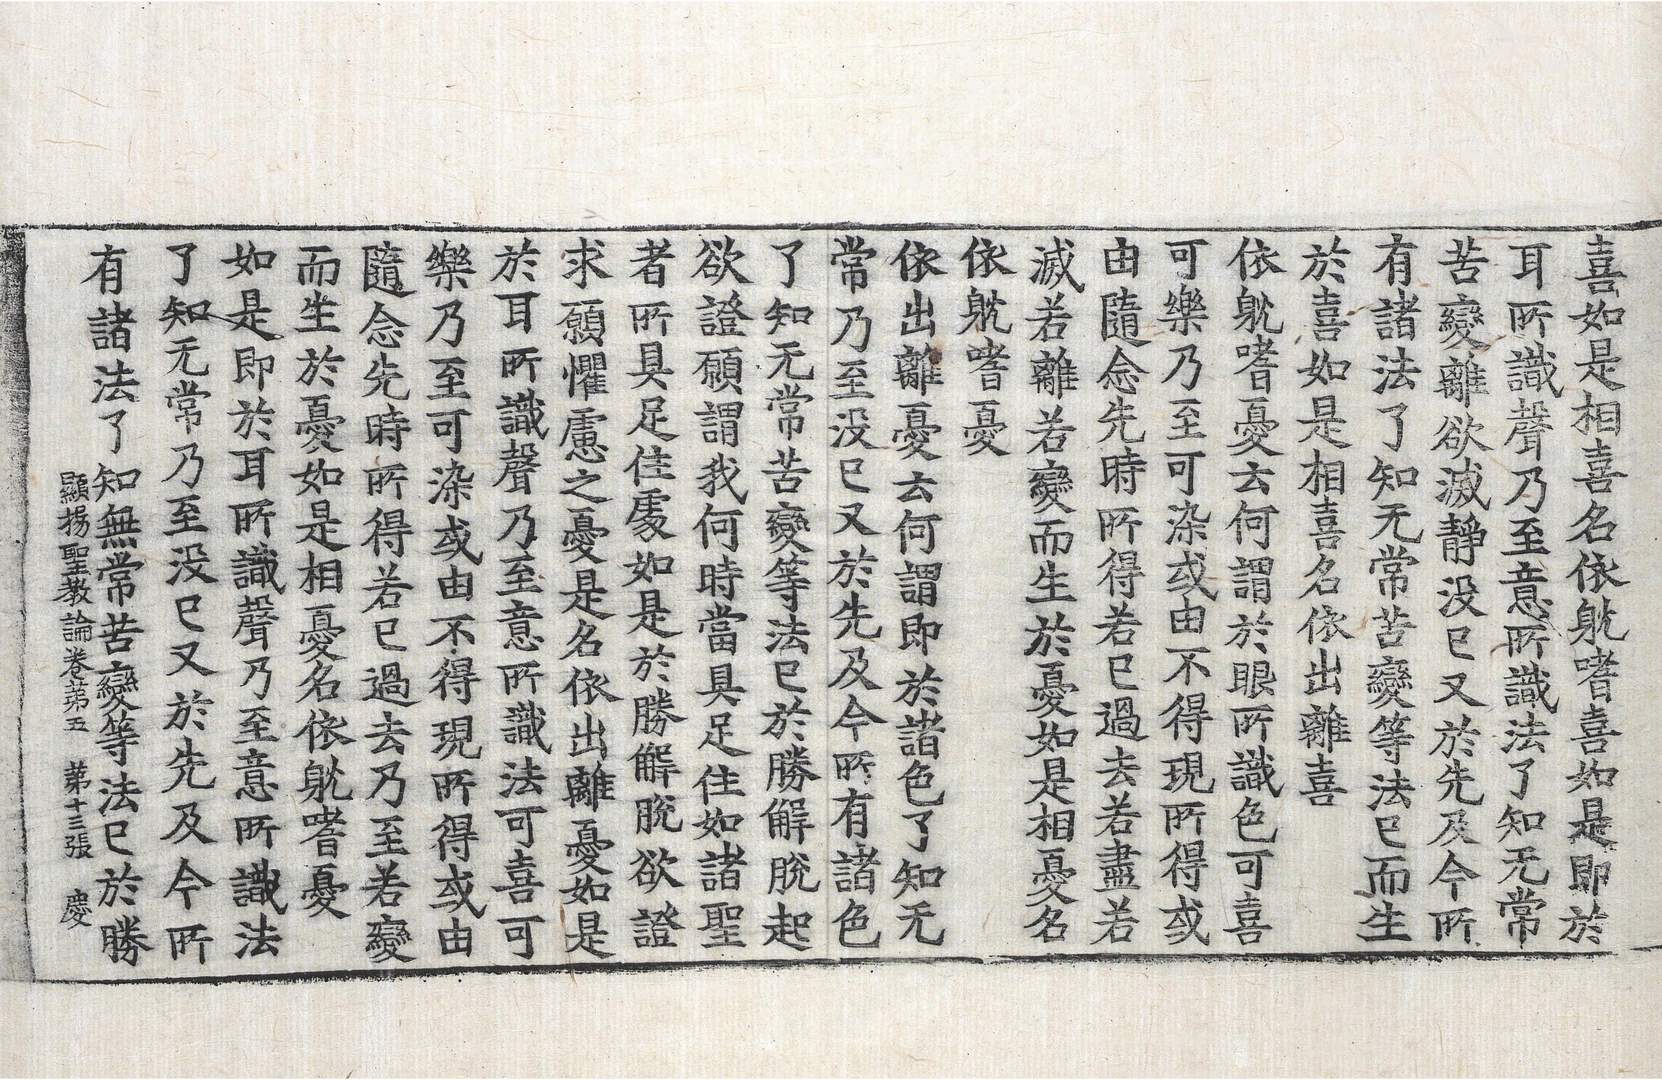 喜如是相喜名依躭嗜喜如是即於
耳所識聲乃至意所識法了知无常
苦變離欲滅靜没已又於先及今所
有諸法了知无常苦變等法已而生
於喜如是相喜名依出離喜
依躭嗜憂云何謂於眼所識色可喜
可樂乃至可染或由不得現所得或
由隨念先時所得若已過去若盡若
滅若離若變而生於憂如是相憂名
依躭嗜憂
依出離憂云何謂即於諸色了知无
常乃至没已又於先及今所有諸色
了知无常苦變等法已於勝解脫起
欲證願謂我何時當具足住如諸聖
者所具足住處如是於勝解脫欲證
求願懼慮之憂是名依出離憂如是
於耳所識聲乃至意所識法可喜可
樂乃至可染或由不得現所得或由
隨念先時所得若已過去乃至若變
而生於憂如是相憂名依躭嗜憂
如是即於耳所識聲乃至意所識法
了知无常乃至没已又於先及今所
有諸法了知無常苦變等法已於勝
顯揚聖教論卷苐五 苐十三張 慶